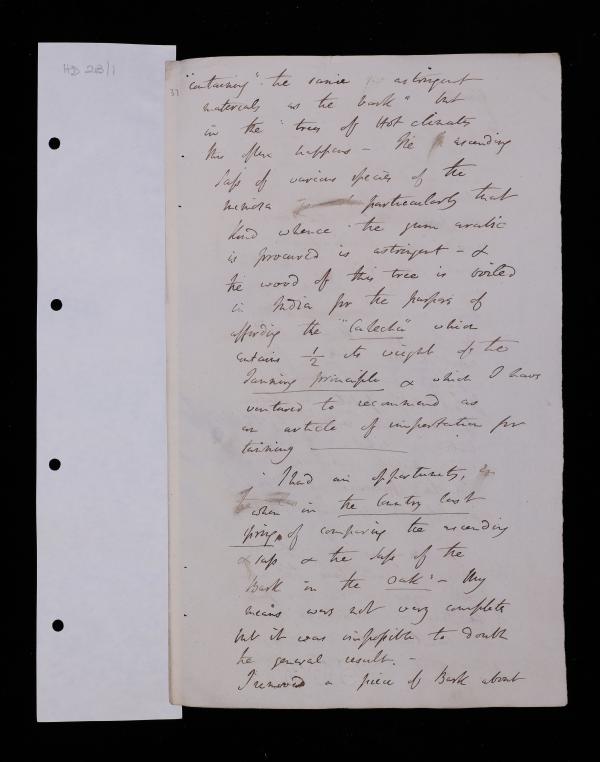 HD 28/1
31
"containing" the same astringent
materials as the bark" but
in the trees of Hot climates
this often happens - The ascending
saps of various species of the
mimosa particularly that
kind whence the gum arabic
is procured is astringent - &
the wood of this tree is boiled
in India for the purpose of
affording the "Catechu" which
contains 1/2 its weight of the
Tanning principle & which I have
ventured to recommend as
an article of importation for
tanning
I had an opportunity,
when in the Country last
spring of comparing the ascending
sap & the sap of the
Bark in the Oak" - My
means were not very complete
but it was impossible to doubt
the general result. -
I removed a piece of Bark about